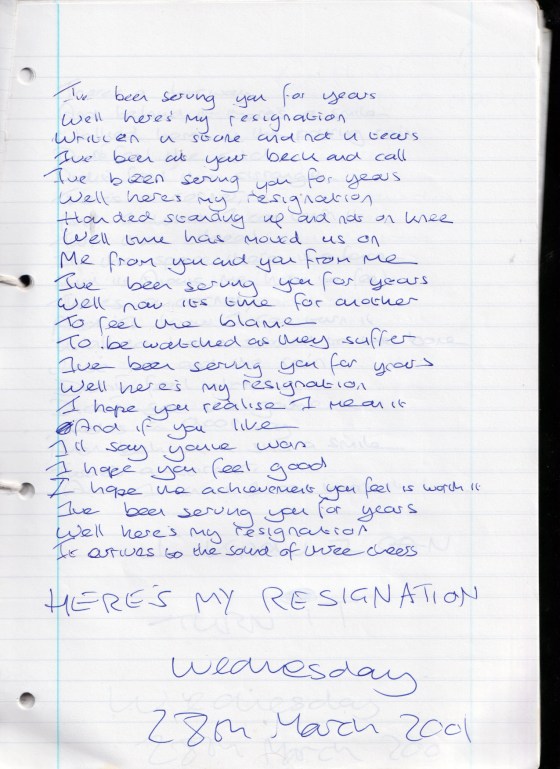 I've been serving you for years
Well here's my resignation
Written in stone and not in tears
I've been at your beck and call
I've been serving you for years
Well here's my resignation
Handed standing up and not on knee
Well time has moved us on
Me from you and you from me
I've been serving you for years
Well now it's time for another
To feel the blame
To be watched as they suffer
I've been serving you for years
Well here's my resignation
I hope you realise I mean it
And if you like
I'll say you've won
I hope you feel good
I hope the achievement you feel is worth it
I've been serving you for years
Well here's my resignation
It arrives to the sound of three cheers
HERE'S MY RESIGNATION
Wednesday
28th March 2001